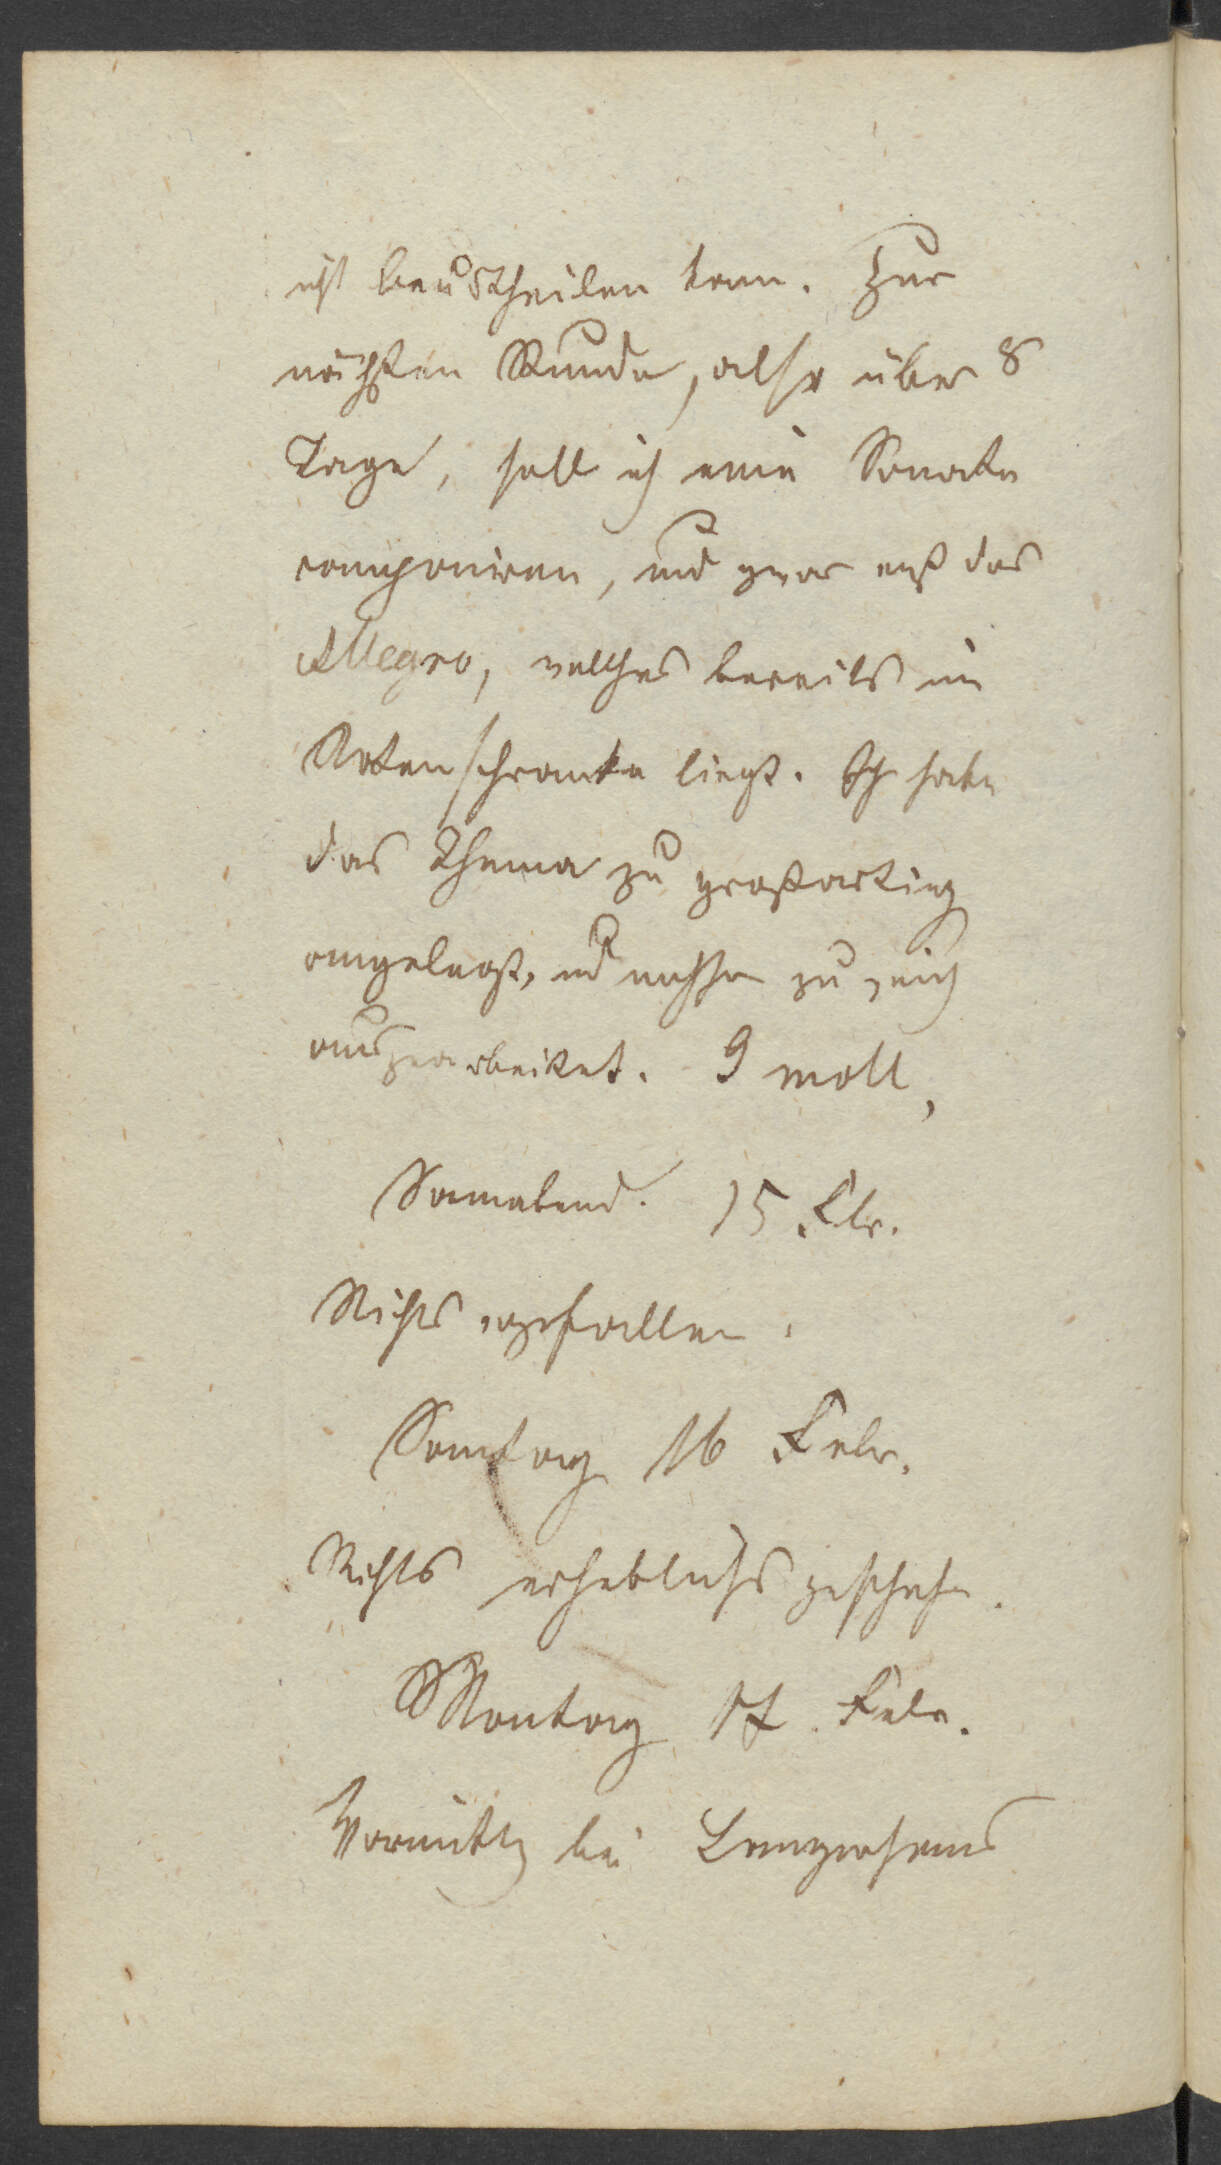 nicht beurtheilen kann. Zur
nächsten Stunde, also über 8
Tage, soll ich eine Sonate
componiren, und zwar erst das
Allegro, welches bereits im
Notenschranke liegt. Ich habe
das Thema zu großartig
angelegt, und nachher zu
ausgearbeitet. G moll,
Sonnabend. 15 Febr.
Nichts vorgefallen.
Sonntag 16 Febr.
Nichts erhebliches geschehn.
Montag 17. Febr.
Vormittg bei